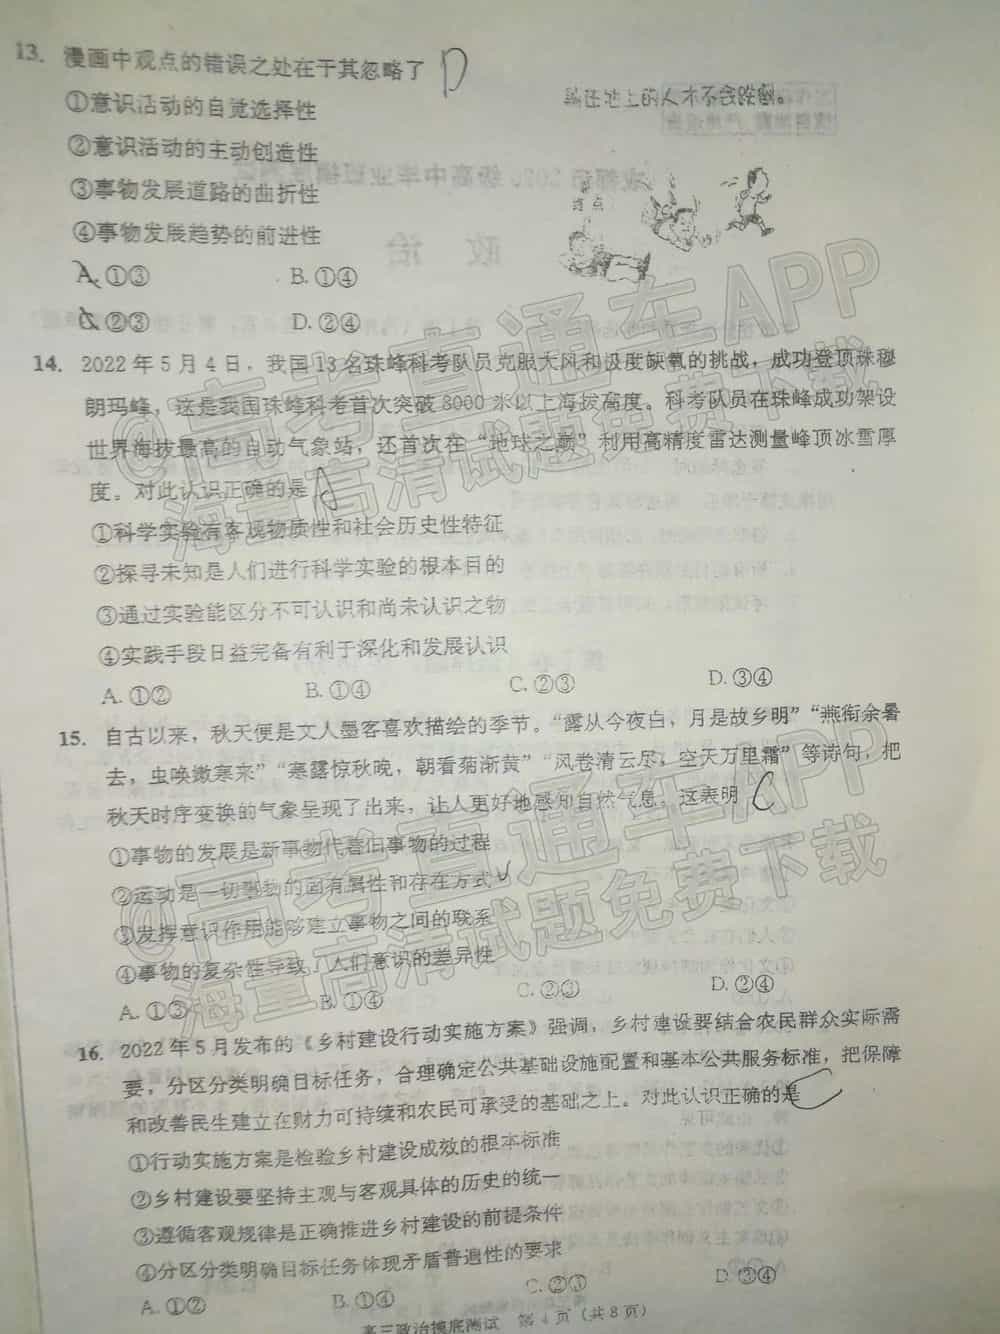 13. 漫画中观点的错误之处在于其忽略了 D
①意识活动的自觉选择性
②意识活动的主动创造性
③事物发展道路的曲折性
④事物发展趋势的前进性
A. ①③ B. ①④
C. ②③ D. ②④
躺在地上的人才不会跌倒。
终点
14. 2022年5月4日，我国13名珠峰科考队员克服大风和极度缺氧的挑战，成功登顶珠穆
朗玛峰，这是我国珠峰科考首次突破8000米以上海拔高度。科考队员在珠峰成功架设
世界海拔最高的自动气象站，还首次在“地球之巅”利用高精度雷达测量峰顶冰雪厚
度。对此认识正确的是
①科学实验有客观物质性和社会历史性特征
②探寻未知是人们进行科学实验的根本目的
③通过实验能区分不可认识和尚未认识之物
④实践手段日益完备有利于深化和发展认识
A. ①② B. ①④ C. ②③ D. ③④
15. 自古以来，秋天便是文人墨客喜欢描绘的季节。“露从今夜白，月是故乡明”“燕衔余暑
去，虫唤嫩寒来”“寒露惊秋晚，朝看菊渐黄”“风卷清云尽，空天万里霜”等诗句，把
秋天时序变换的气象呈现了出来，让人更好地感知自然气息。这表明 C
①事物的发展是新事物代替旧事物的过程
②运动是一切事物的固有属性和存在方式
③发挥意识作用能够建立事物之间的联系
④事物的复杂性导致了人们意识的差异性
A. ①③ B. ①④ C. ②③ D. ②④
16. 2022年5月发布的《乡村建设行动实施方案》强调，乡村建设要结合农民群众实际需
要，分区分类明确目标任务，合理确定公共基础设施配置和基本公共服务标准，把保障
和改善民生建立在财力可持续和农民可承受的基础之上。对此认识正确的是 C
①行动实施方案是检验乡村建设成效的根本标准
②乡村建设要坚持主观与客观具体的历史的统一
③遵循客观规律是正确推进乡村建设的前提条件
④分区分类明确目标任务体现矛盾普遍性的要求
A. ①② B. ①④ C. ②③ D. ③④
高三政治摸底测试 第4页（共8页）
@高考直通车APP
海量高清试题免费下载
@高考直通车APP
海量高清试题免费下载